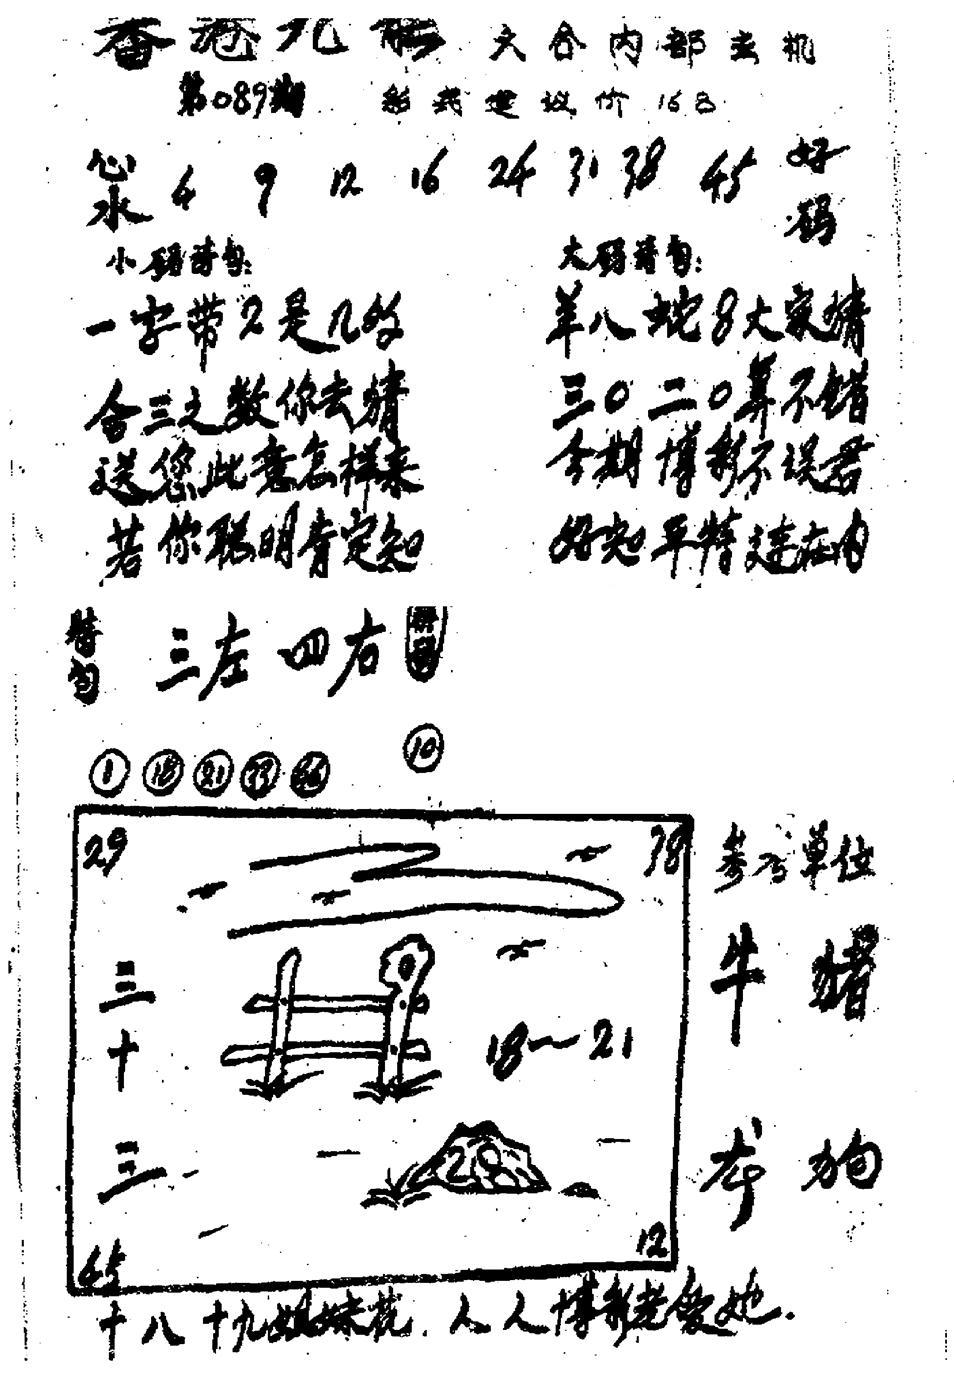 香港九龍 六合内部玄机
第089期 彩民建议价 16B
心水 4 9 12 16 24 31 38 45 好码
小码诗句: 大码诗句:
一字带2是几的
合三之数你去猜
送您此意怎样来
若你聪明肯定知
羊八蛇8大家猜
三0二0算不错
今期博彩不误君
好知平特连在内
特句 三左四右
1 18 21 33 36 10
29 38
三十三
18~21
28
45 12
参考单位
牛 猪
龙 狗
十八十九姐妹花.人人博彩老爱她.